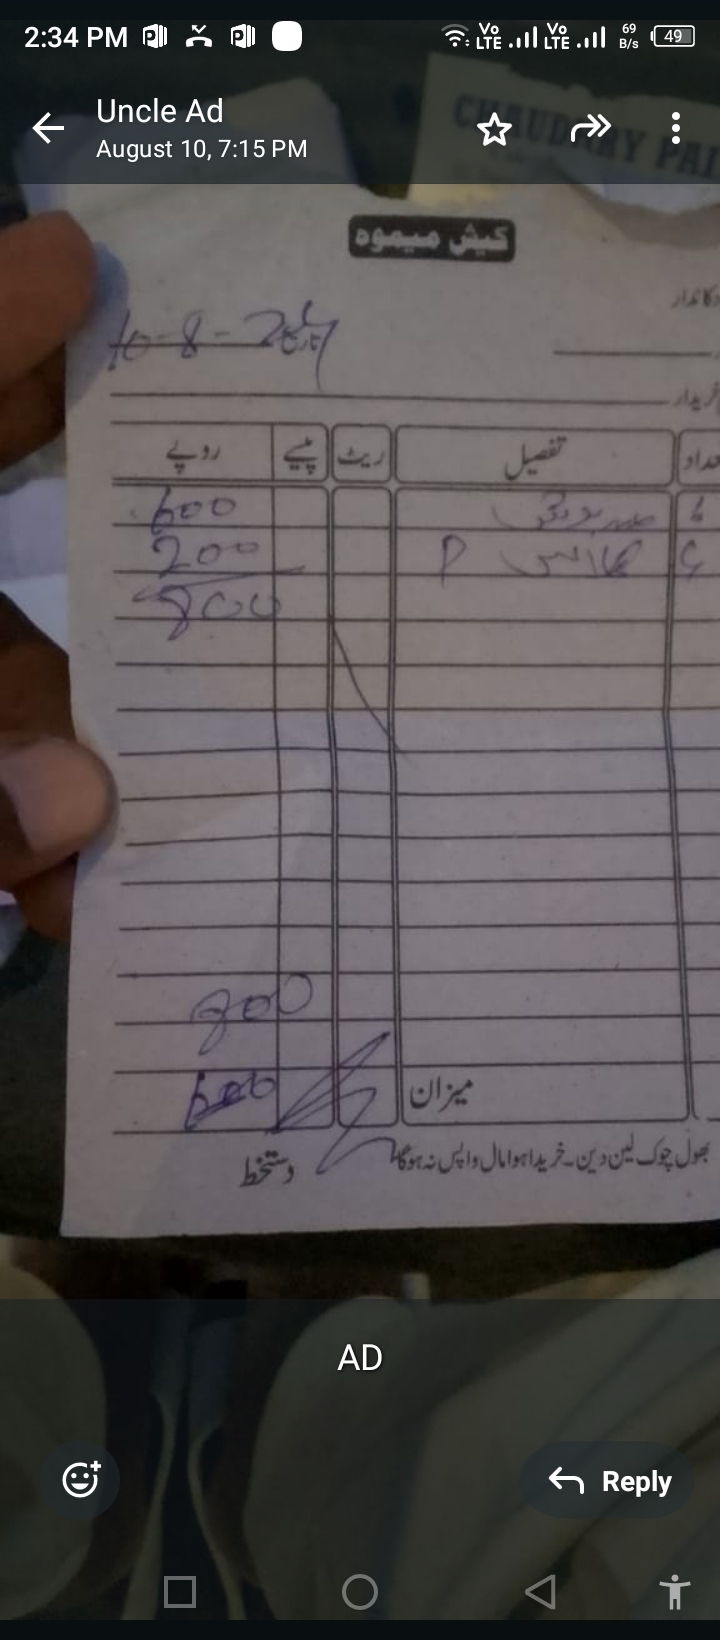 2:34 PM Vo LTE Vo LTE 69 B/s 49
Uncle Ad
August 10, 7:15 PM
CHAUDHRY PAI
کیش میمو
دکاندار
10-8-24 تاریخ
خریدار
تعداد تفصیل ریٹ پیسے روپے
600
P 200
800
800
میزان 600
بھول چوک لین دین۔خریدا ہوا مال واپس نہ ہوگا
دستخط
AD
Reply